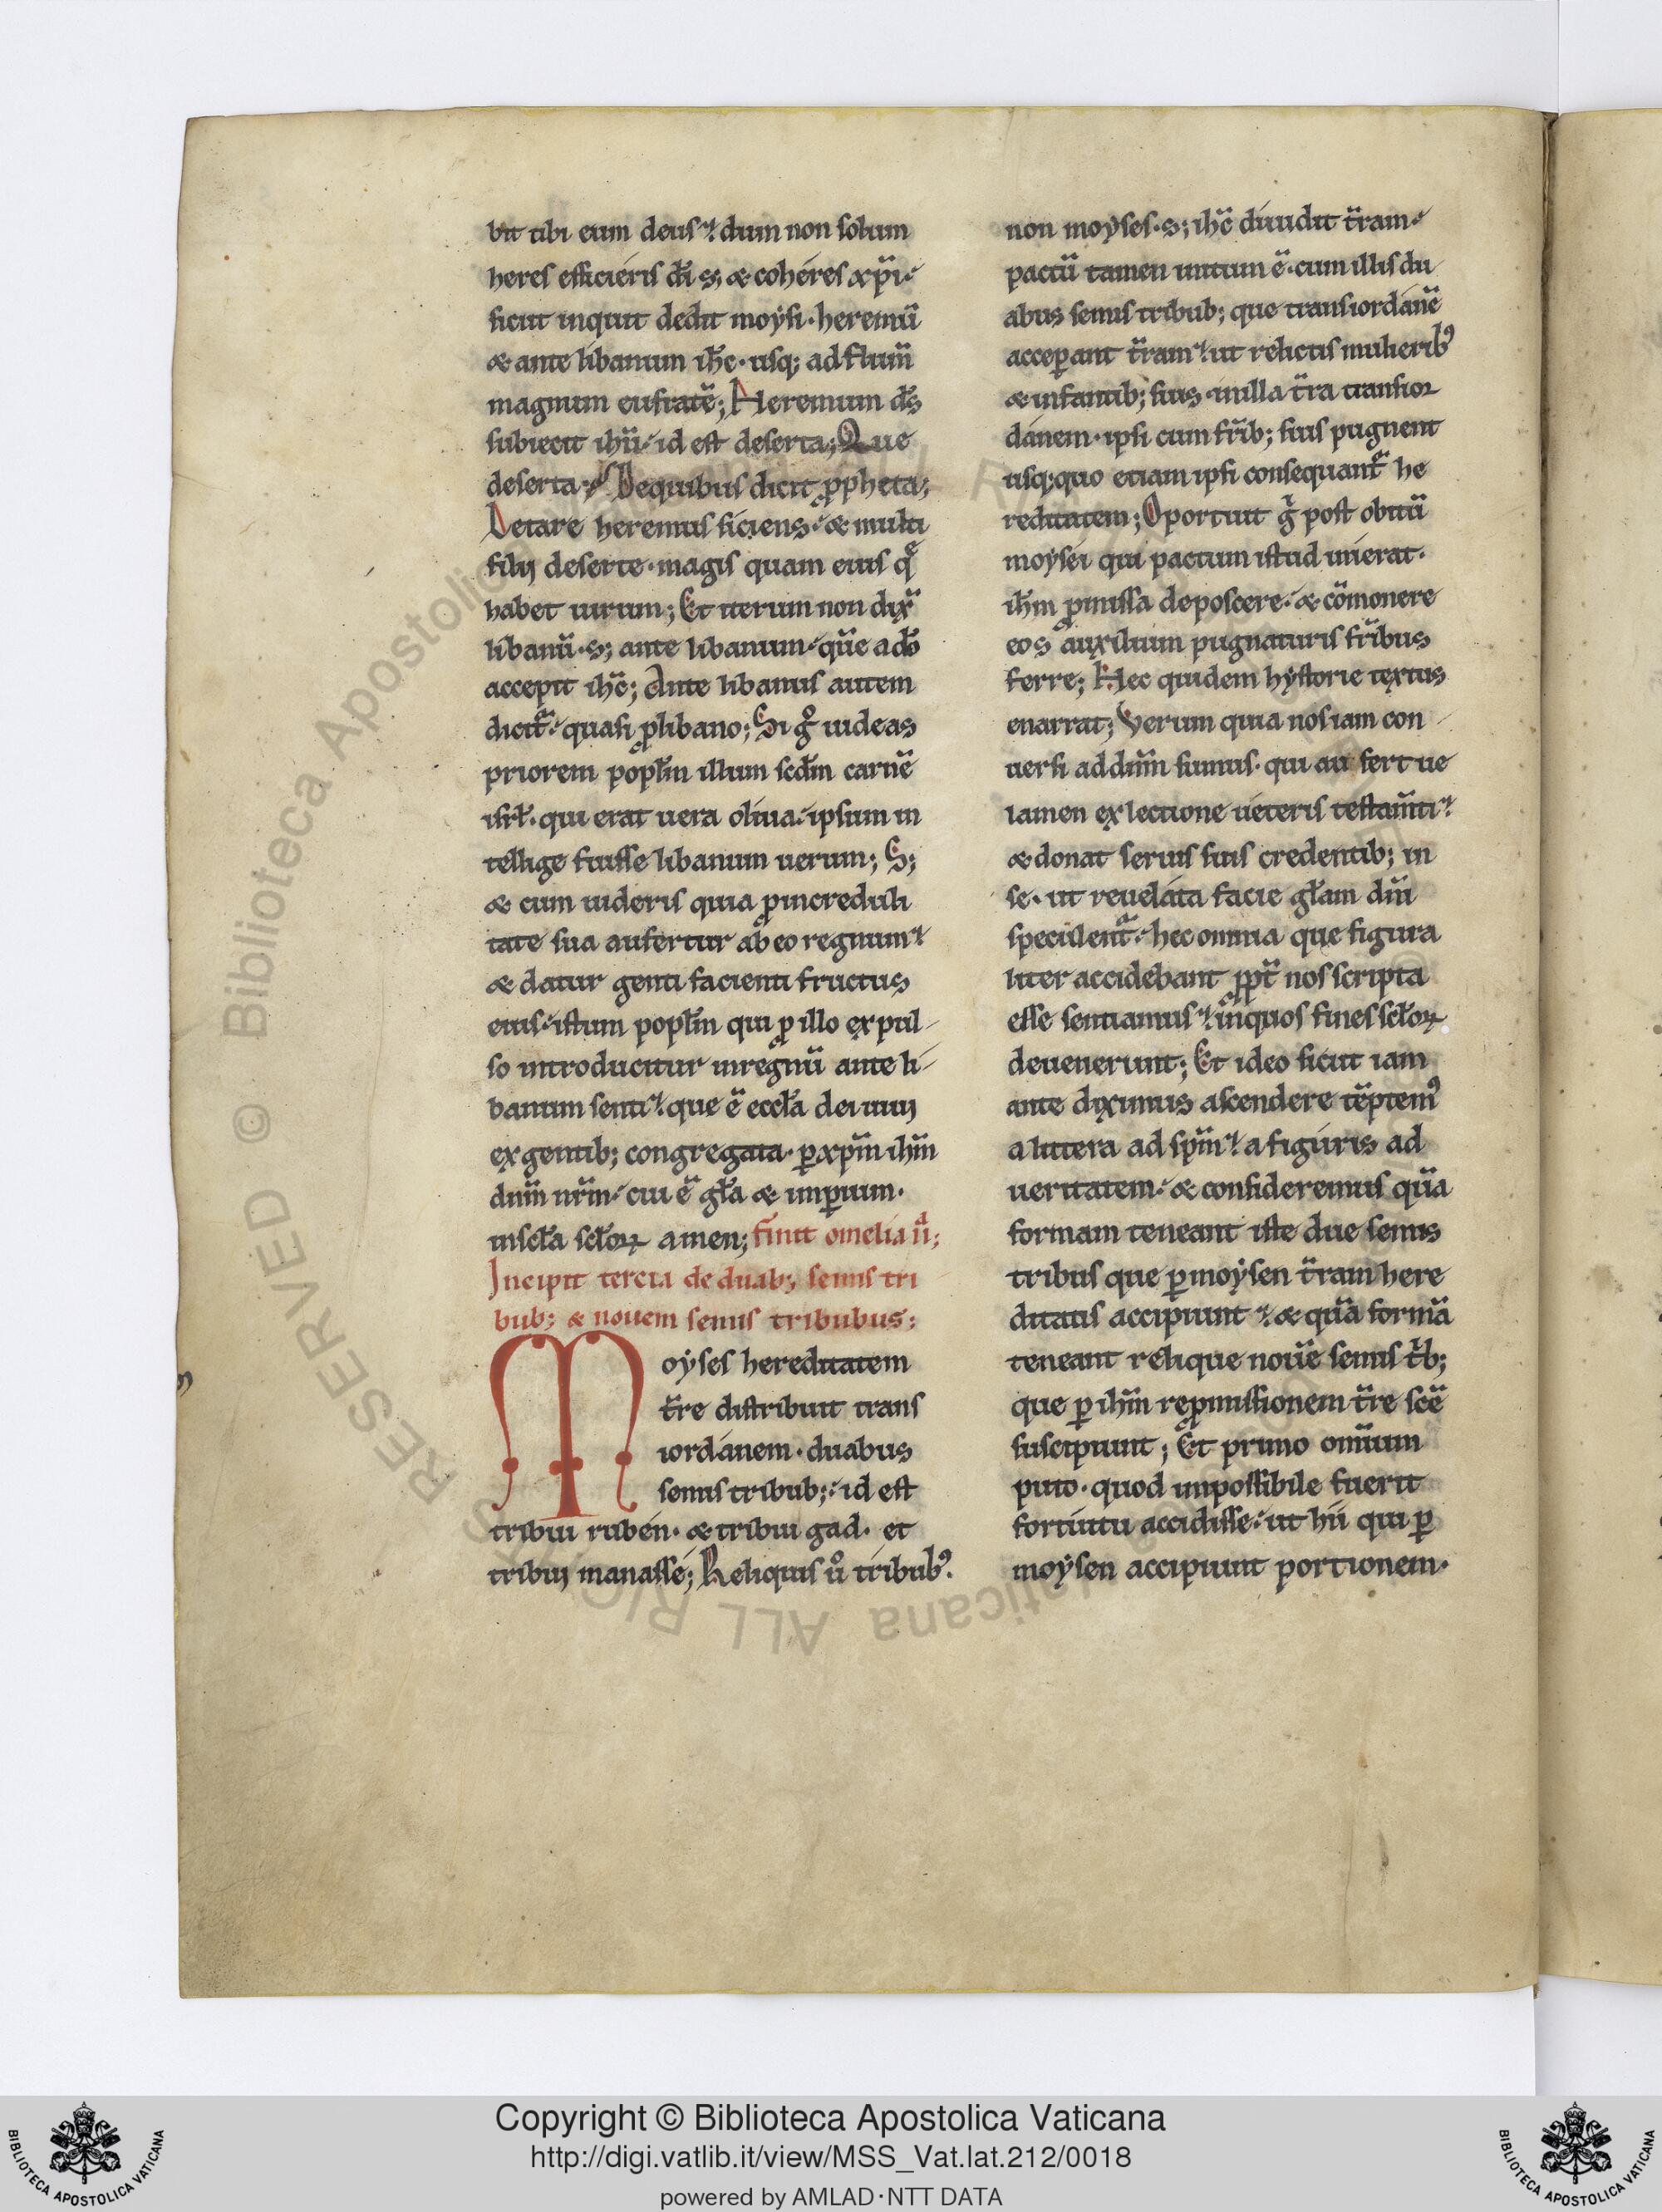 bit tibi eum deus? dum non solum
heres efficiéris dī s; & cohéres xp̄i.
sicut inquit dedit moẏsi. heremū
& ante libanum ih̄c. usq; ad flum̄
magnum eufratē; Heremum ds̄
subiecit ihū. id est deserta; Que
deserta? De quibus dicit ꝓpheta;
Letare heremus siciens. & multi
filij deserte. magis quam eius q̄
habet uirum; Et iterum non dix̄
libanū. s; ante libanum. quē adhō
accepit ih̄c; Ante libanus autem
dicit̄. quasi ꝓ libano; Si gͦ uideas
priorem popl̄m illum scdm̄ carnē
isrl̄. qui erat uera oliua. ipsum in
tellige fuisse libanum uerum; S;
& cum uideris quia ꝓ increduli
tate sua aufertur ab eo regnum?
& datur genti facienti fructus
eius. istum popl̄m qui ꝓ illo expul-
so introducitur in regnū ante li-
banum senti? que ē eccl̄a dei uiui
ex gentib; congregata. ꝑ xp̄m ihm̄
dnm̄ nrm̄. cui ē gl̄a & imꝑium.
in scl̄a scl̄oꝝ amen; finit omelia ii͛;
Incipit tercia de duab; semis tri
bub; & nouem semis tribubus;
Moẏses hereditatem
tr̄re distribuit trans
iordánem. duabus
semis tribub; id est
tribui rubén. & tribui gad. et
tribui manassé; Reliquis ůͦ tribubꝰ.
non moẏses. s; ih̄c diuidit tr̄am.
pactū tamen initum ē. cum illis du
abus semis tribub; que trans iordánē
acceꝑant tr̄am? ut relictis mulieribꝰ
& infantib; suis. in illa tr̄ra transior
dánem. ipsi cum fr̄ib; suis pugnent
usq; quo etiam ipsi consequant̄ he
reditatem; Oportuit g̈ post obitū
moẏséi qui pactum istud inierat.
ihm̄ ꝓmissa deposcere. & cōmonere
eos auxilium pugnaturis fr̄ibus
ferre; Hec quidem hẏstorie textus
enarrat; Verum quia nos iam con-
uersi ad dnm̄ sumus. qui aufert ue
lamen ex lectione uéteris testam̄ti?
& donat seruis suis credentib; in
se. ut reueláta facie gl̄am dni̅
speculent̄. hec omnia que figura
liter accidebant ꝓpt̄ nos scripta
esse sentiamus? in quos fines scl̄oꝝ
deuenerunt; Et ideo sicut iam
ante diximus ascendere tēptemꝰ
a littera ad spm̄? a figúris ad
ueritatem. & consideremus quā
formam teneant iste due semis
tribus que ꝑ moẏsen tr̄am here
ditatis accipiunt? & quā formā
teneant relique nouē semis tr̄b;
que ꝑ ihm̄ reꝓmissionem tr̄re scē
suscipiunt; Et primo omnium
puto. quod impossibile fuerit
fortúitu accidisse. ut hii qui ꝑ
moẏsen accipiunt portionem.
Copyright © Biblioteca Apostolica Vaticana
http://digi.vatlib.it/view/MSS_Vat.lat.212/0018
powered by AMLAD·NTT DATA